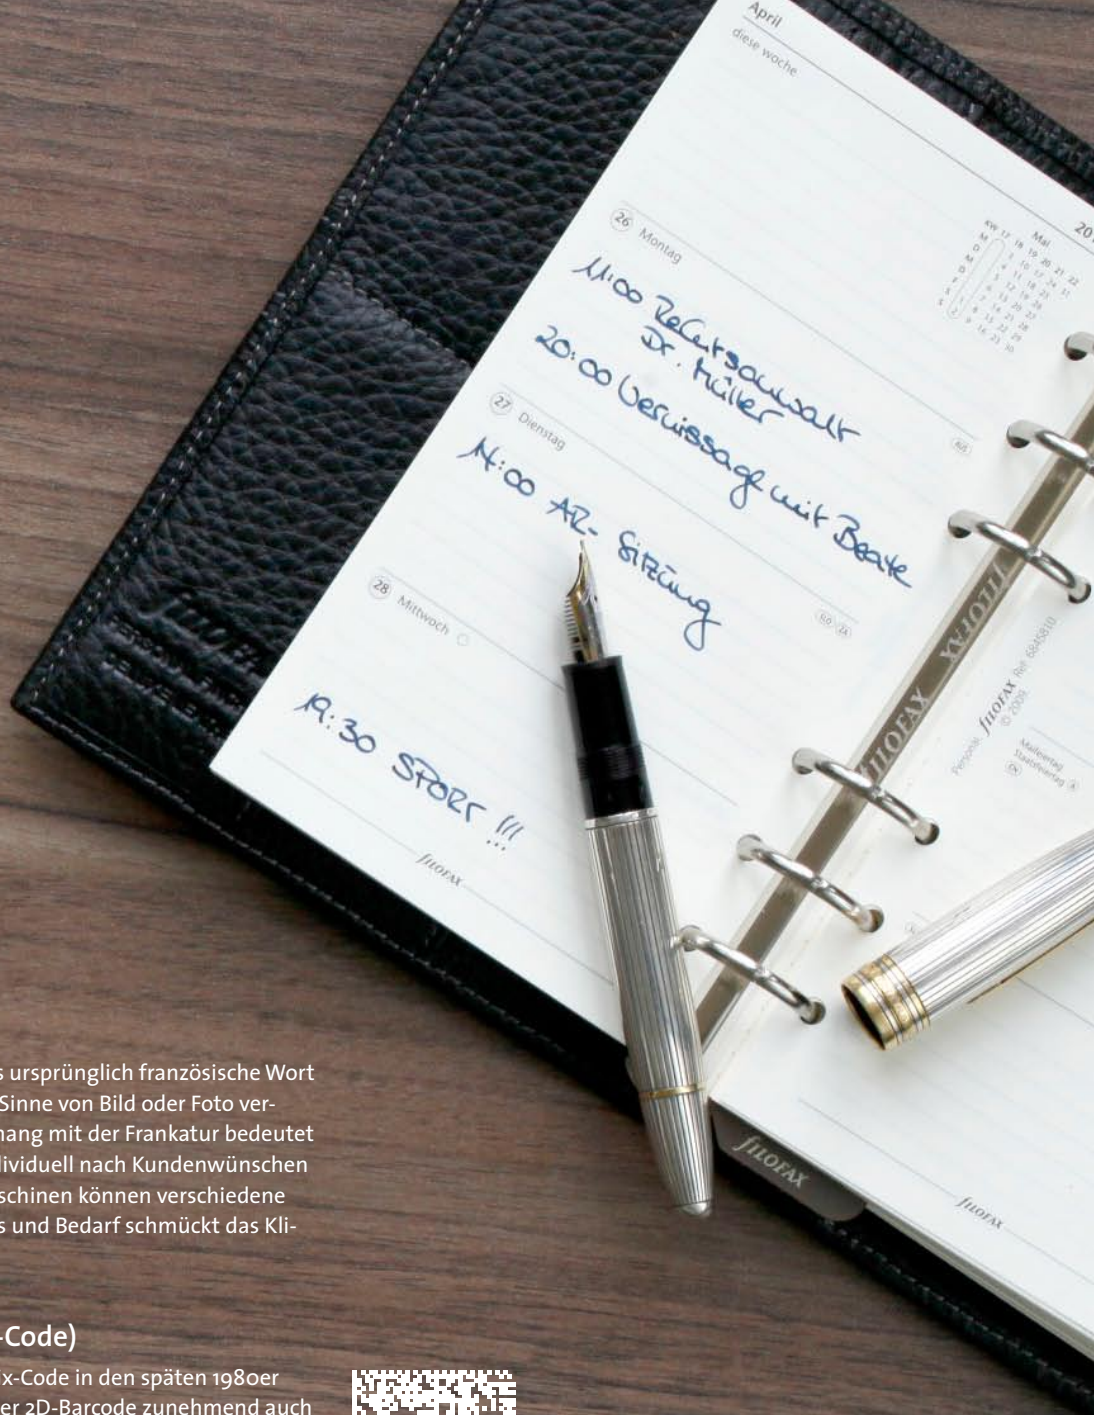 April
diese woche
20
KW 17 18 19 20 21 22
Mai
26 Montag
11:00 Rechtsanwalt
Dr. Müller
20:00 Vernissage mit Beate
AUS
27 Dienstag
14:00 AR- Sitzung
28 Mittwoch
19:30 SPORT !!!
fILOFAX
fILOFAX
fILOFAX
Personal fILOFAX Ref 6845810
© 2009
Maifeiertag
Staatsfeiertag A
fILOFAX
fILOFAX
s ursprünglich französische Wort
Sinne von Bild oder Foto ver-
hang mit der Frankatur bedeutet
dividuell nach Kundenwünschen
schinen können verschiedene
s und Bedarf schmückt das Kli-
-Code)
x-Code in den späten 1980er
er 2D-Barcode zunehmend auch